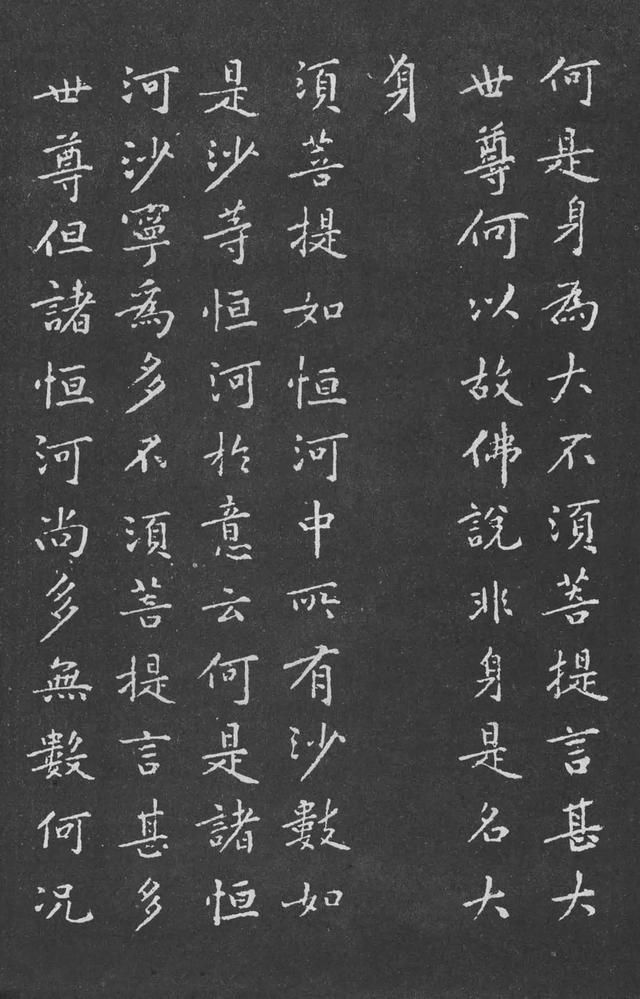 何是身為大不須菩提言甚大
世尊何以故佛說非身是名大
身
須菩提如恒河中所有沙數如
是沙等恒河於意云何是諸恒
河沙寧為多不須菩提言甚多
世尊但諸恒河尚多無數何况